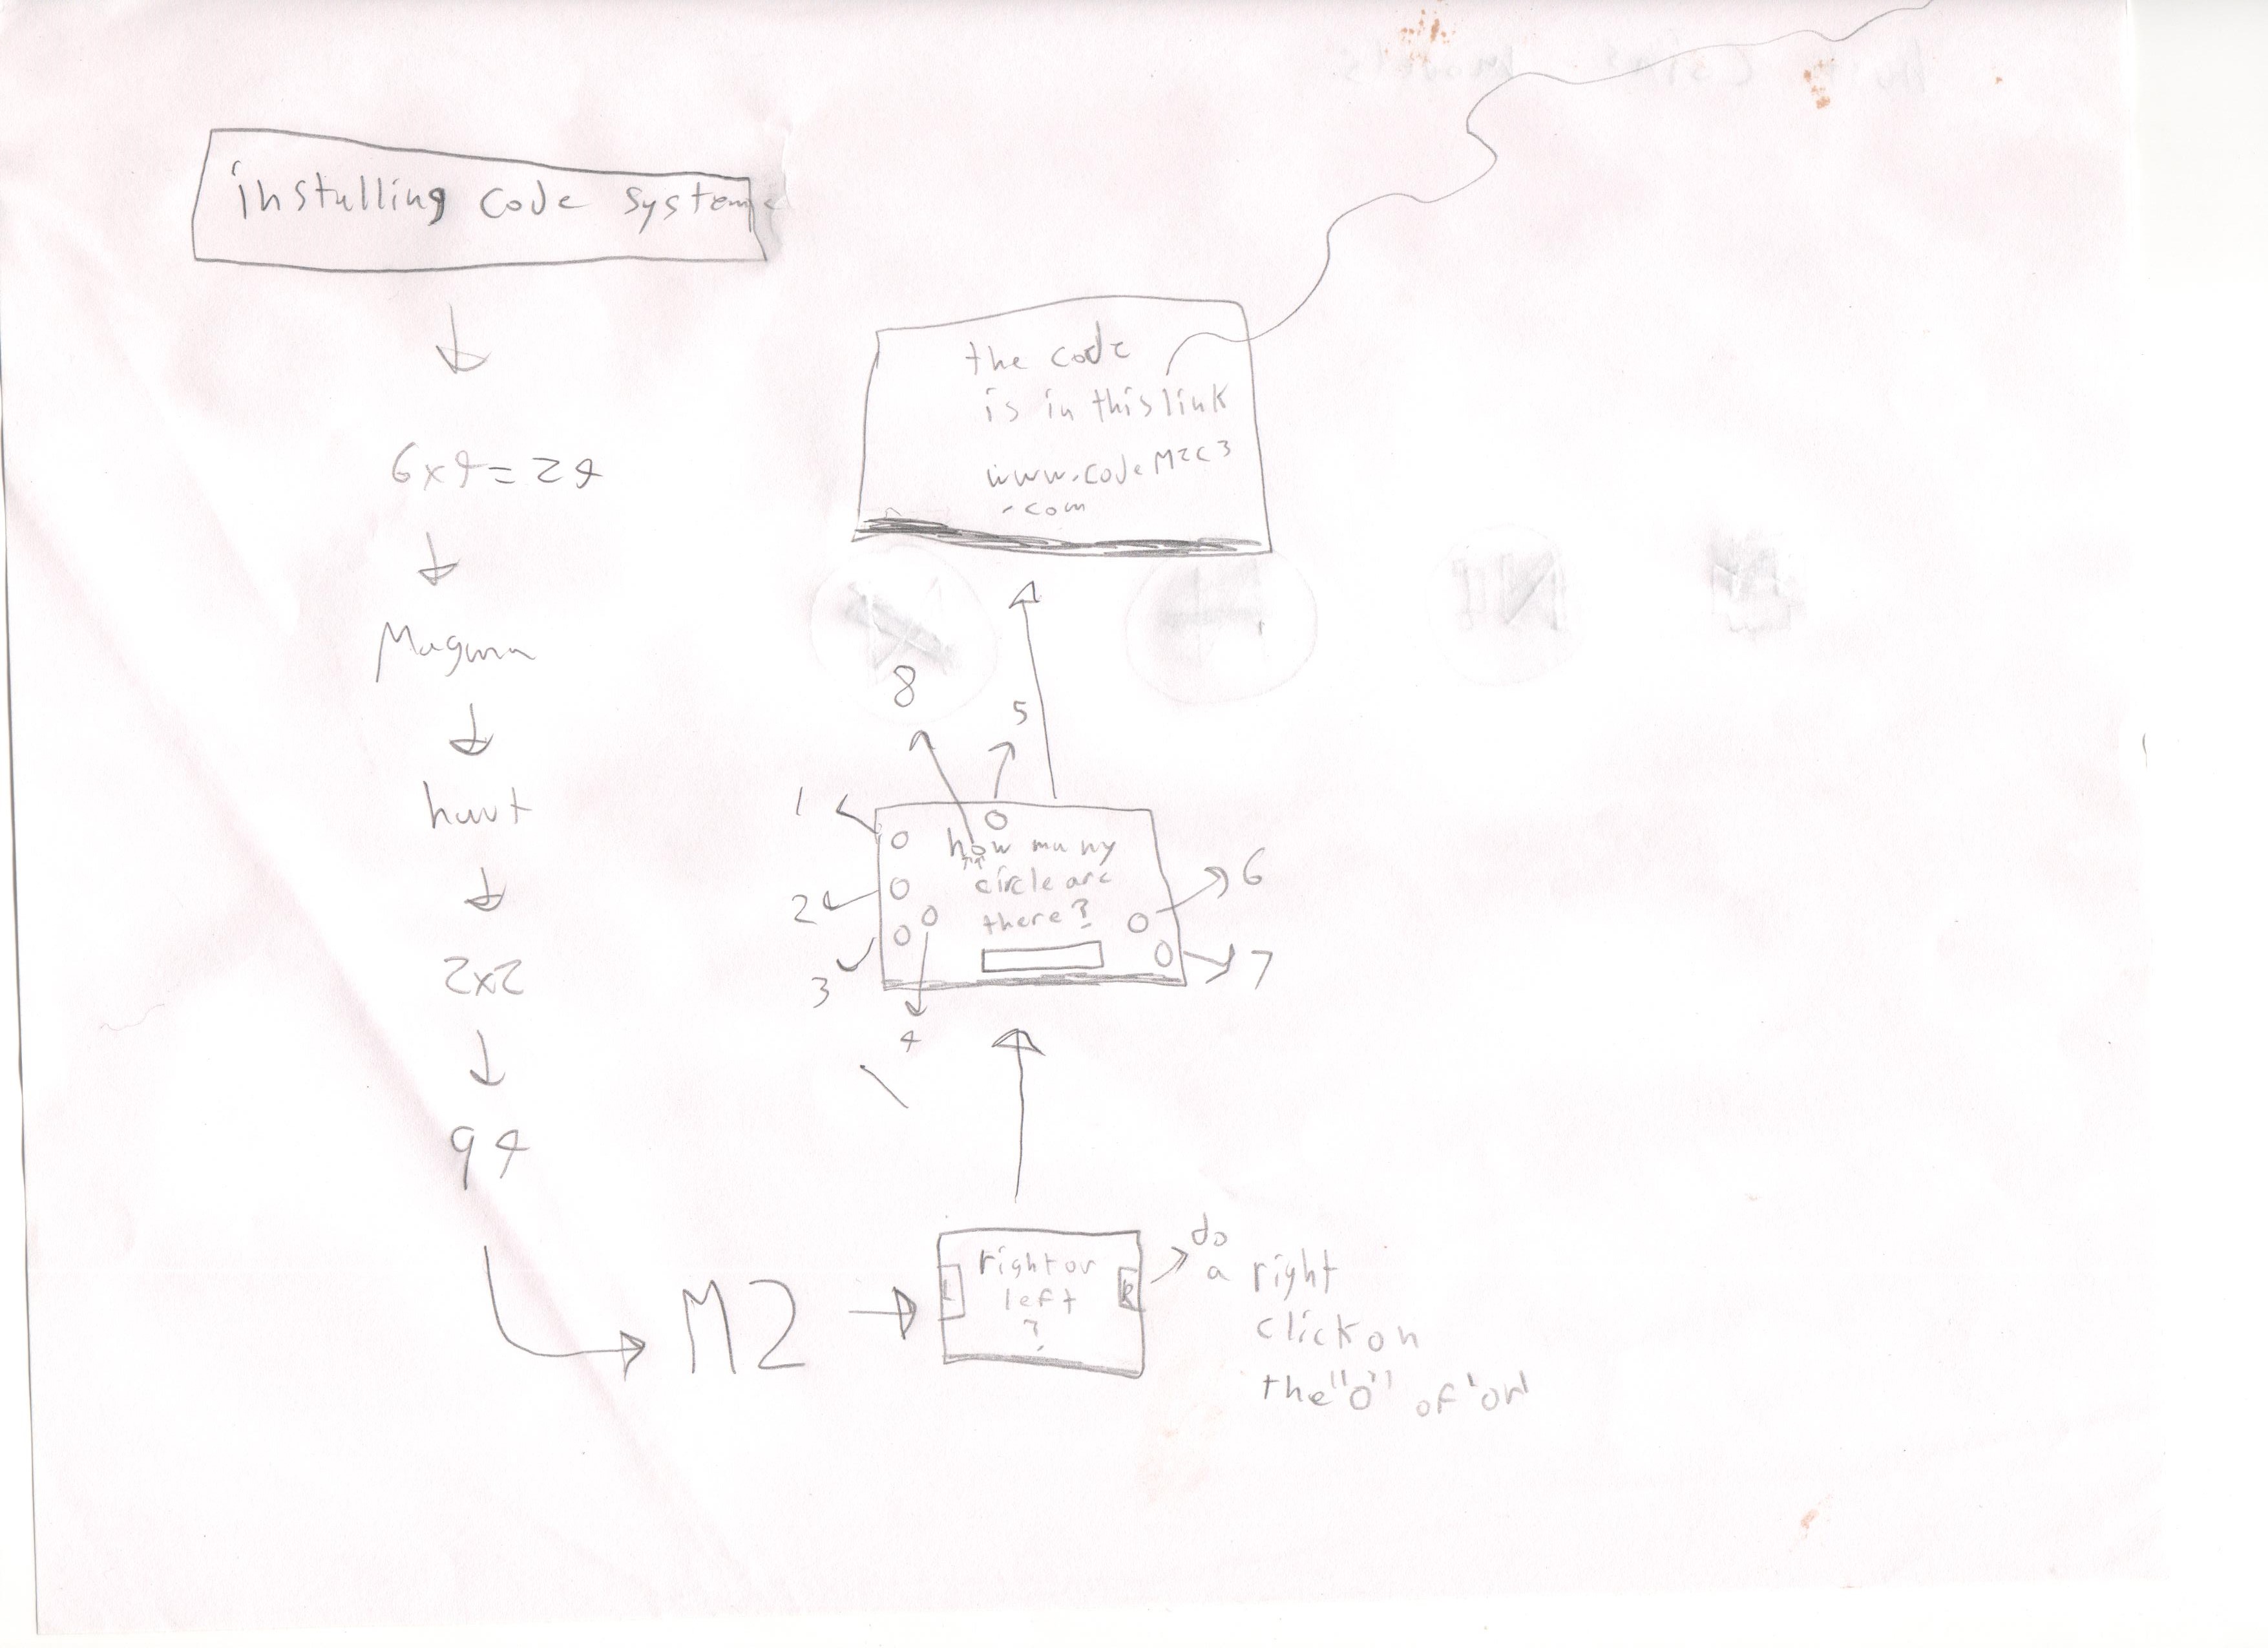 installing code system
6x4=24
Magma
2x2
94
M2
right or
left
?
L
R
do
a right
click on
the "o" of 'or'
how many
circle are
there?
1
2
3
4
5
6
7
8
the code
is in this link
www.codeM2C3
.com